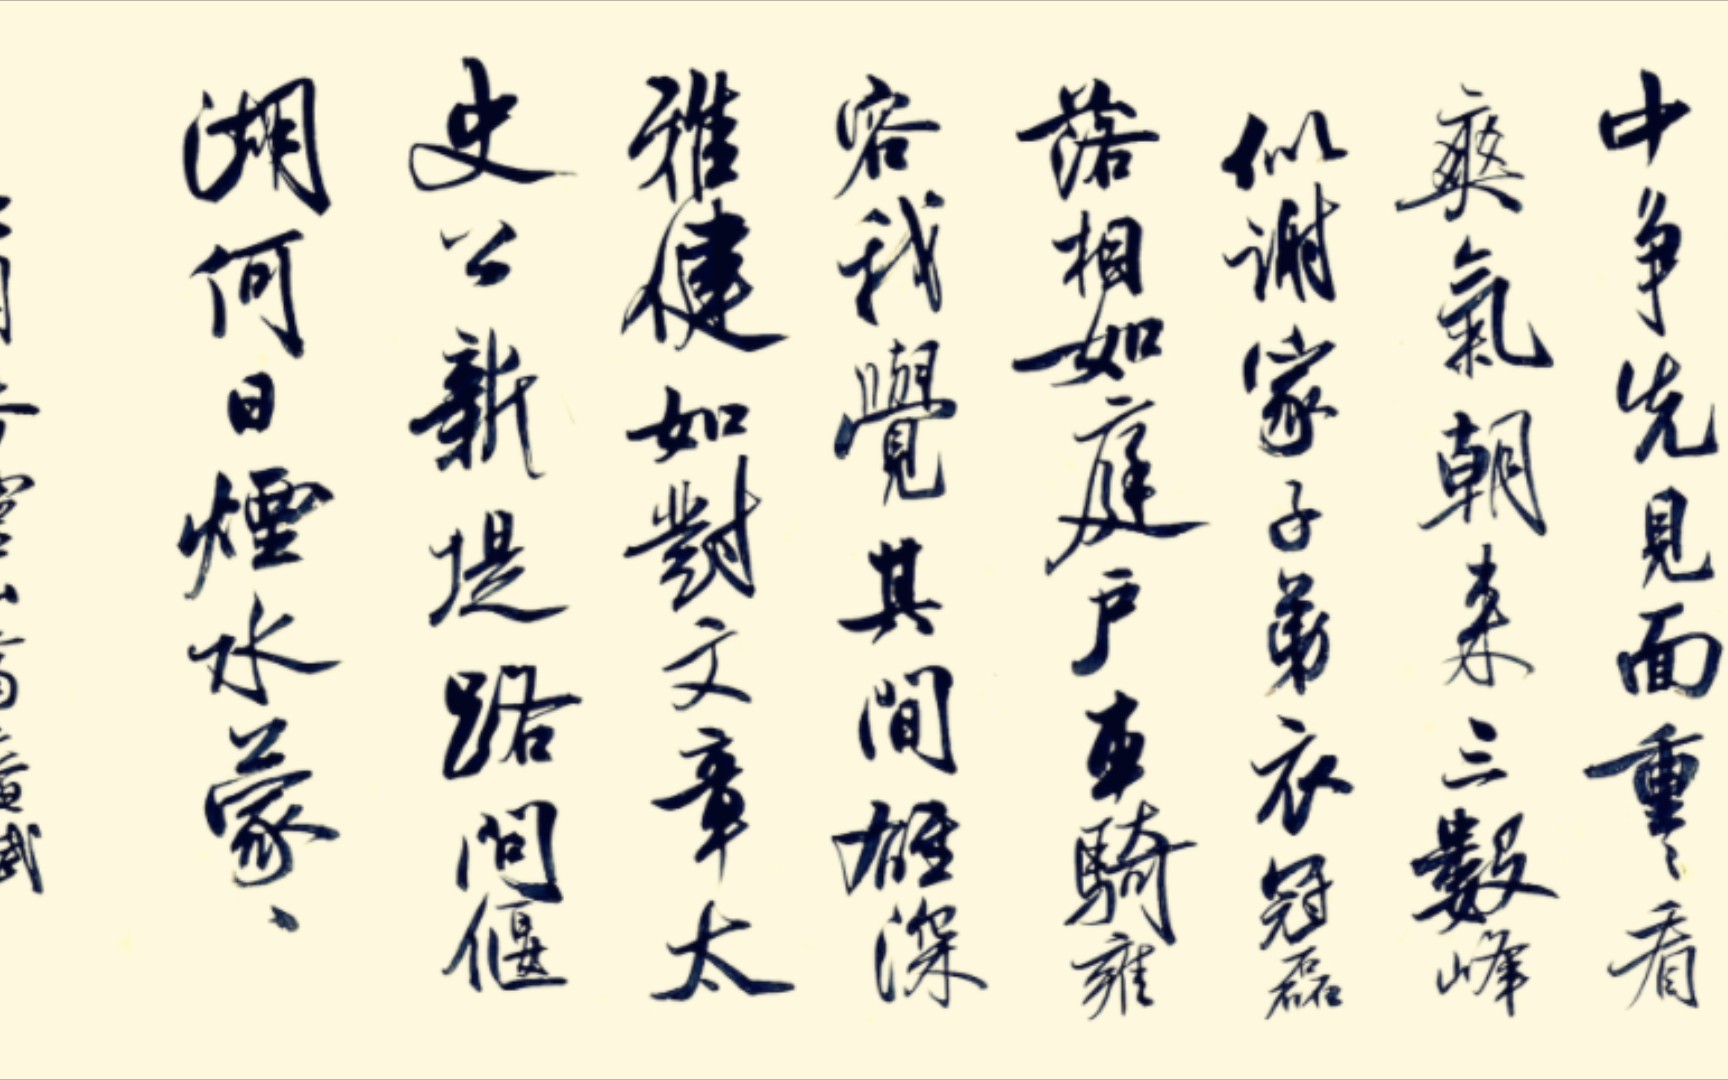 中争先見面重〻看
爽氣朝来三數峰
似谢家子弟衣冠磊
落相如庭户車騎雍
容我覺其間雄深
雅健如對文章太
史公新堤路問偃
湖何日煙水蒙〻